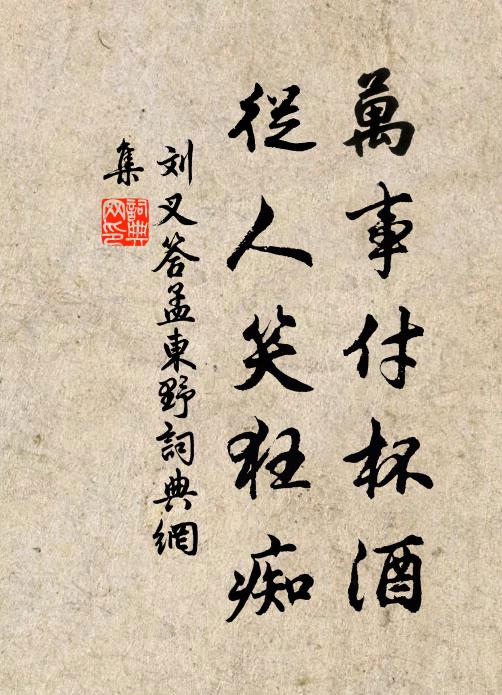 萬事付杯酒
從人笑狂痴
刘叉答孟東野詞典網
集
詞典
网印